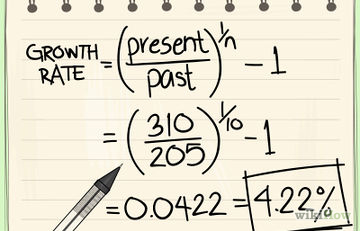 GROWTH RATE = (present/past)^1/n - 1
= (310/205)^1/10 - 1
= 0.0422 = 4.22%
wikiHow